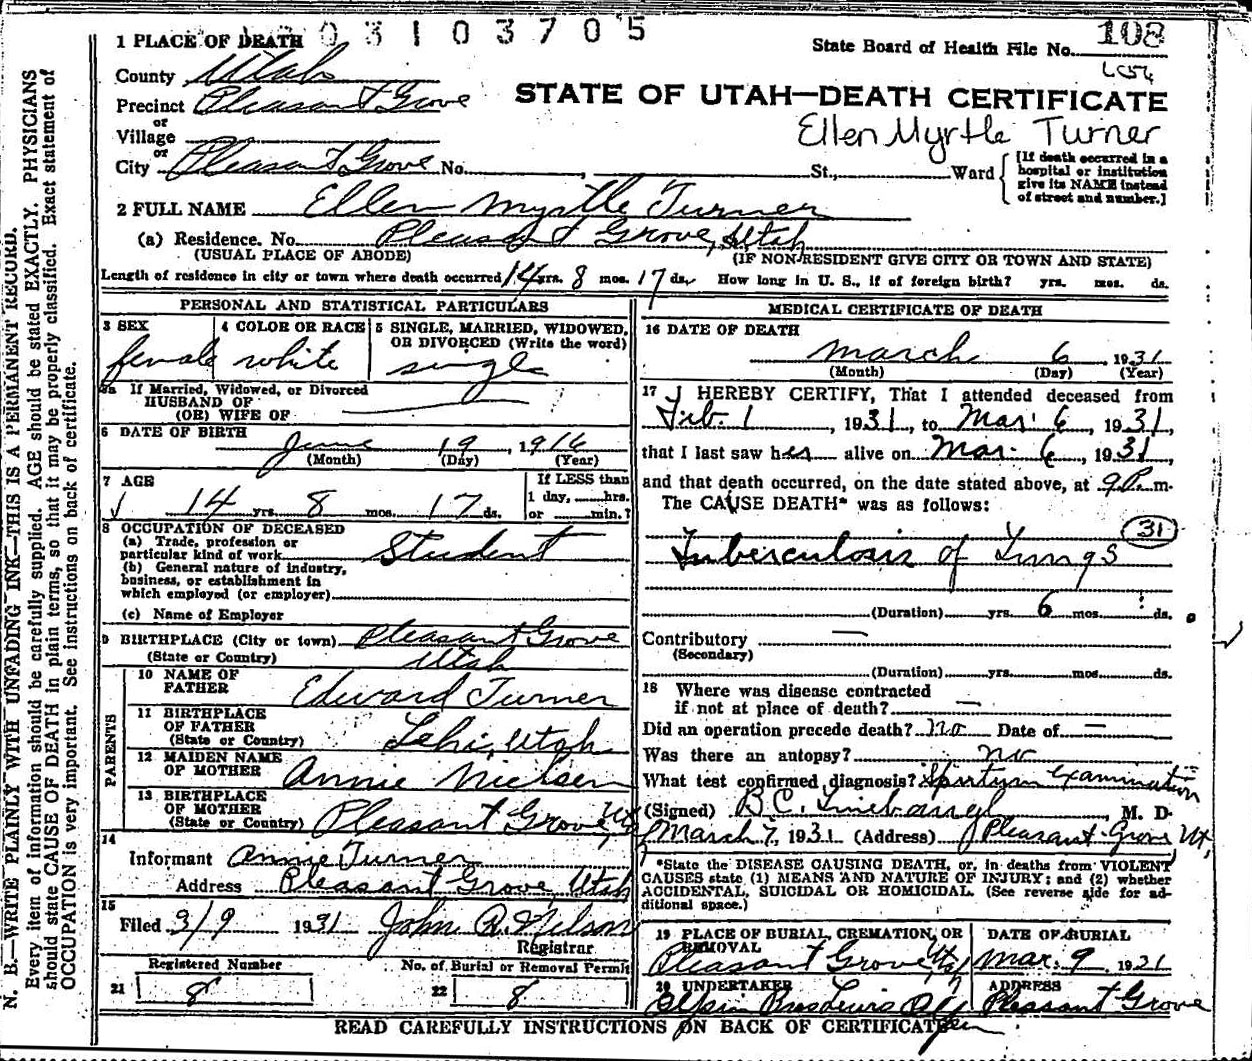 03103705
1 PLACE OF DEATH
State Board of Health File No. 108
County Utah
Precinct Pleasant Grove
STATE OF UTAH—DEATH CERTIFICATE
or
Village
Ellen Myrtle Turner
or
City Pleasant Grove No. , St., Ward
[If death occurred in a
hospital or institution
give its NAME instead
of street and number.]
2 FULL NAME Ellen Myrtle Turner
(a) Residence. No. Pleasant Grove, Utah
(USUAL PLACE OF ABODE) (IF NON-RESIDENT GIVE CITY OR TOWN AND STATE)
Length of residence in city or town where death occurred 14 yrs. 8 mos. 17 ds. How long in U. S., if of foreign birth? yrs. mos. ds.
PERSONAL AND STATISTICAL PARTICULARS
3 SEX
female
4 COLOR OR RACE
white
5 SINGLE, MARRIED, WIDOWED,
OR DIVORCED (Write the word)
single
5a If Married, Widowed, or Divorced
HUSBAND OF
(OR) WIFE OF
6 DATE OF BIRTH
June 19, 1916
(Month) (Day) (Year)
7 AGE
14 yrs. 8 mos. 17 ds.
If LESS than
1 day, hrs.
or min.?
8 OCCUPATION OF DECEASED
(a) Trade, profession or
particular kind of work Student
(b) General nature of industry,
business, or establishment in
which employed (or employer)
(c) Name of Employer
9 BIRTHPLACE (City or town) Pleasant Grove
(State or Country) Utah
PARENTS
10 NAME OF
FATHER Edward Turner
11 BIRTHPLACE
OF FATHER
(State or Country) Lehi, Utah
12 MAIDEN NAME
OF MOTHER Annie Nielsen
13 BIRTHPLACE
OF MOTHER
(State or Country) Pleasant Grove, Ut
14
Informant Annie Turner
Address Pleasant Grove, Utah
15
Filed 3/9 1931 John A. Nelson
Registrar
Registered Number
21 8
No. of Burial or Removal Permit
22 8
MEDICAL CERTIFICATE OF DEATH
16 DATE OF DEATH
March 6, 1931
(Month) (Day) (Year)
17 I HEREBY CERTIFY, That I attended deceased from
Feb. 1, 1931, to Mar. 6, 1931,
that I last saw her alive on Mar. 6, 1931,
and that death occurred, on the date stated above, at 9 P. m.
The CAUSE DEATH* was as follows:
31
Tuberculosis of Lungs
(Duration) yrs. 6 mos. ds.
Contributory
(Secondary)
(Duration) yrs. mos. ds.
18 Where was disease contracted
if not at place of death? —
Did an operation precede death? no Date of —
Was there an autopsy? no
What test confirmed diagnosis? Spurtum Examination
(Signed) B.C. Linebaugh M. D.
March 7, 1931 (Address) Pleasant Grove Ut,
*State the DISEASE CAUSING DEATH, or, in deaths from VIOLENT
CAUSES state (1) MEANS AND NATURE OF INJURY; and (2) whether
ACCIDENTAL, SUICIDAL OR HOMICIDAL. (See reverse side for ad-
ditional space.)
19 PLACE OF BURIAL, CREMATION, OR
REMOVAL
Pleasant Grove, Ut
DATE OF BURIAL
Mar. 9, 1931
20 UNDERTAKER
ADDRESS
Pleasant Grove
READ CAREFULLY INSTRUCTIONS ON BACK OF CERTIFICATE
N. B.—WRITE PLAINLY WITH UNFADING INK—THIS IS A PERMANENT RECORD.
Every item of information should be carefully supplied. AGE should be stated EXACTLY. PHYSICIANS
should state CAUSE OF DEATH in plain terms, so that it may be properly classified. Exact statement of
OCCUPATION is very important. See instructions on back of certificate.